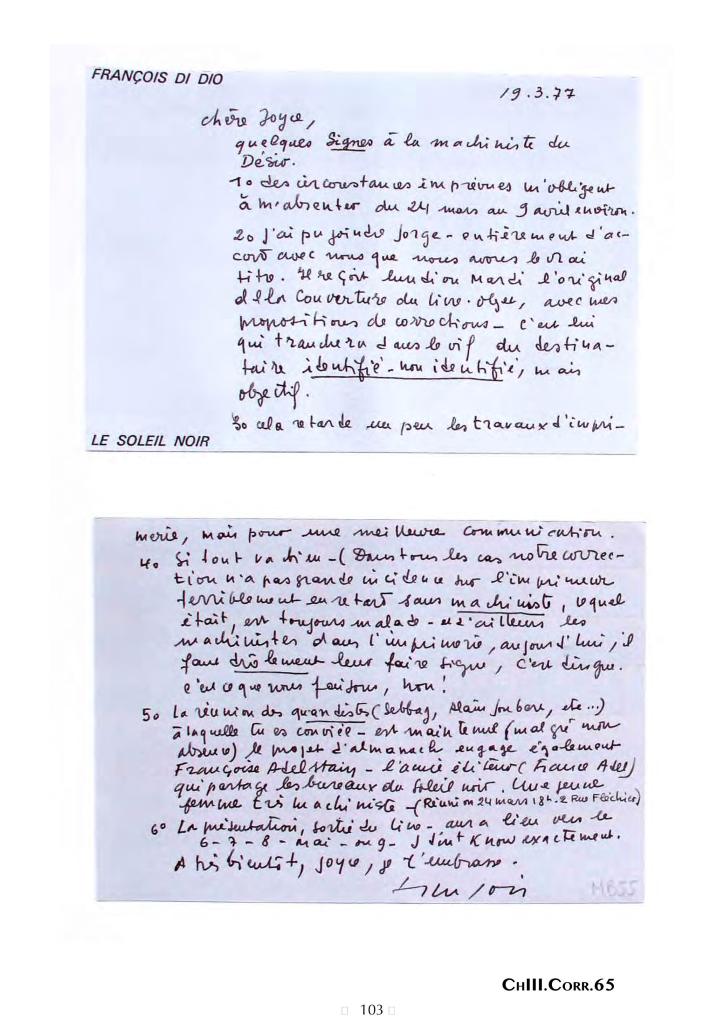 FRANÇOIS DI DIO
19.3.77
chère Joyce,
quelques Signes à la machiniste du
Désir.
1o des circonstances imprévues m'obligent
à m'absenter du 24 mars au 9 avril environ.
2o J'ai pu joindre Jorge - entièrement d'ac-
cord avec nous que nous avons le vrai
titre. Il reçoit lundi ou Mardi l'original
de la Couverture du livre-objet, avec mes
propositions de corrections - C'est lui
qui tranchera dans le vif du destina-
taire identifié - non identifié, mais
objectif.
3o cela retarde un peu les travaux d'impri-
LE SOLEIL NOIR
merie, mais pour une meilleure communication.
4o Si tout va bien - (Dans tous les cas notre correc-
tion n'a pas grande incidence sur l'imprimeur
terriblement en retard sans machiniste, lequel
était, est toujours malade - et d'ailleurs les
machinistes dans l'imprimerie, aujourd'hui, il
faut drôlement leur faire signe, C'est dingue.
C'est ce que nous faisons, non!
5o La réunion des quandistes (Sebbag, Alain Joubert, etc...)
à laquelle tu es conviée - est maintenue (malgré mon
absence) le projet d'almanach engage également
Françoise Adelstain - l'amie éditeur (France Adel)
qui partage les bureaux du Soleil noir. Une jeune
femme très machiniste - (Réunion 24 mars 18h. 2 Rue Fléchier)
6o La présentation, sortie du livre - aura lieu vers le
6 - 7 - 8 - mai - ou 9 - I dont Know exactement.
A très bientôt, Joyce, je t'embrasse.
François
MB55
CHIII.CORR.65
103